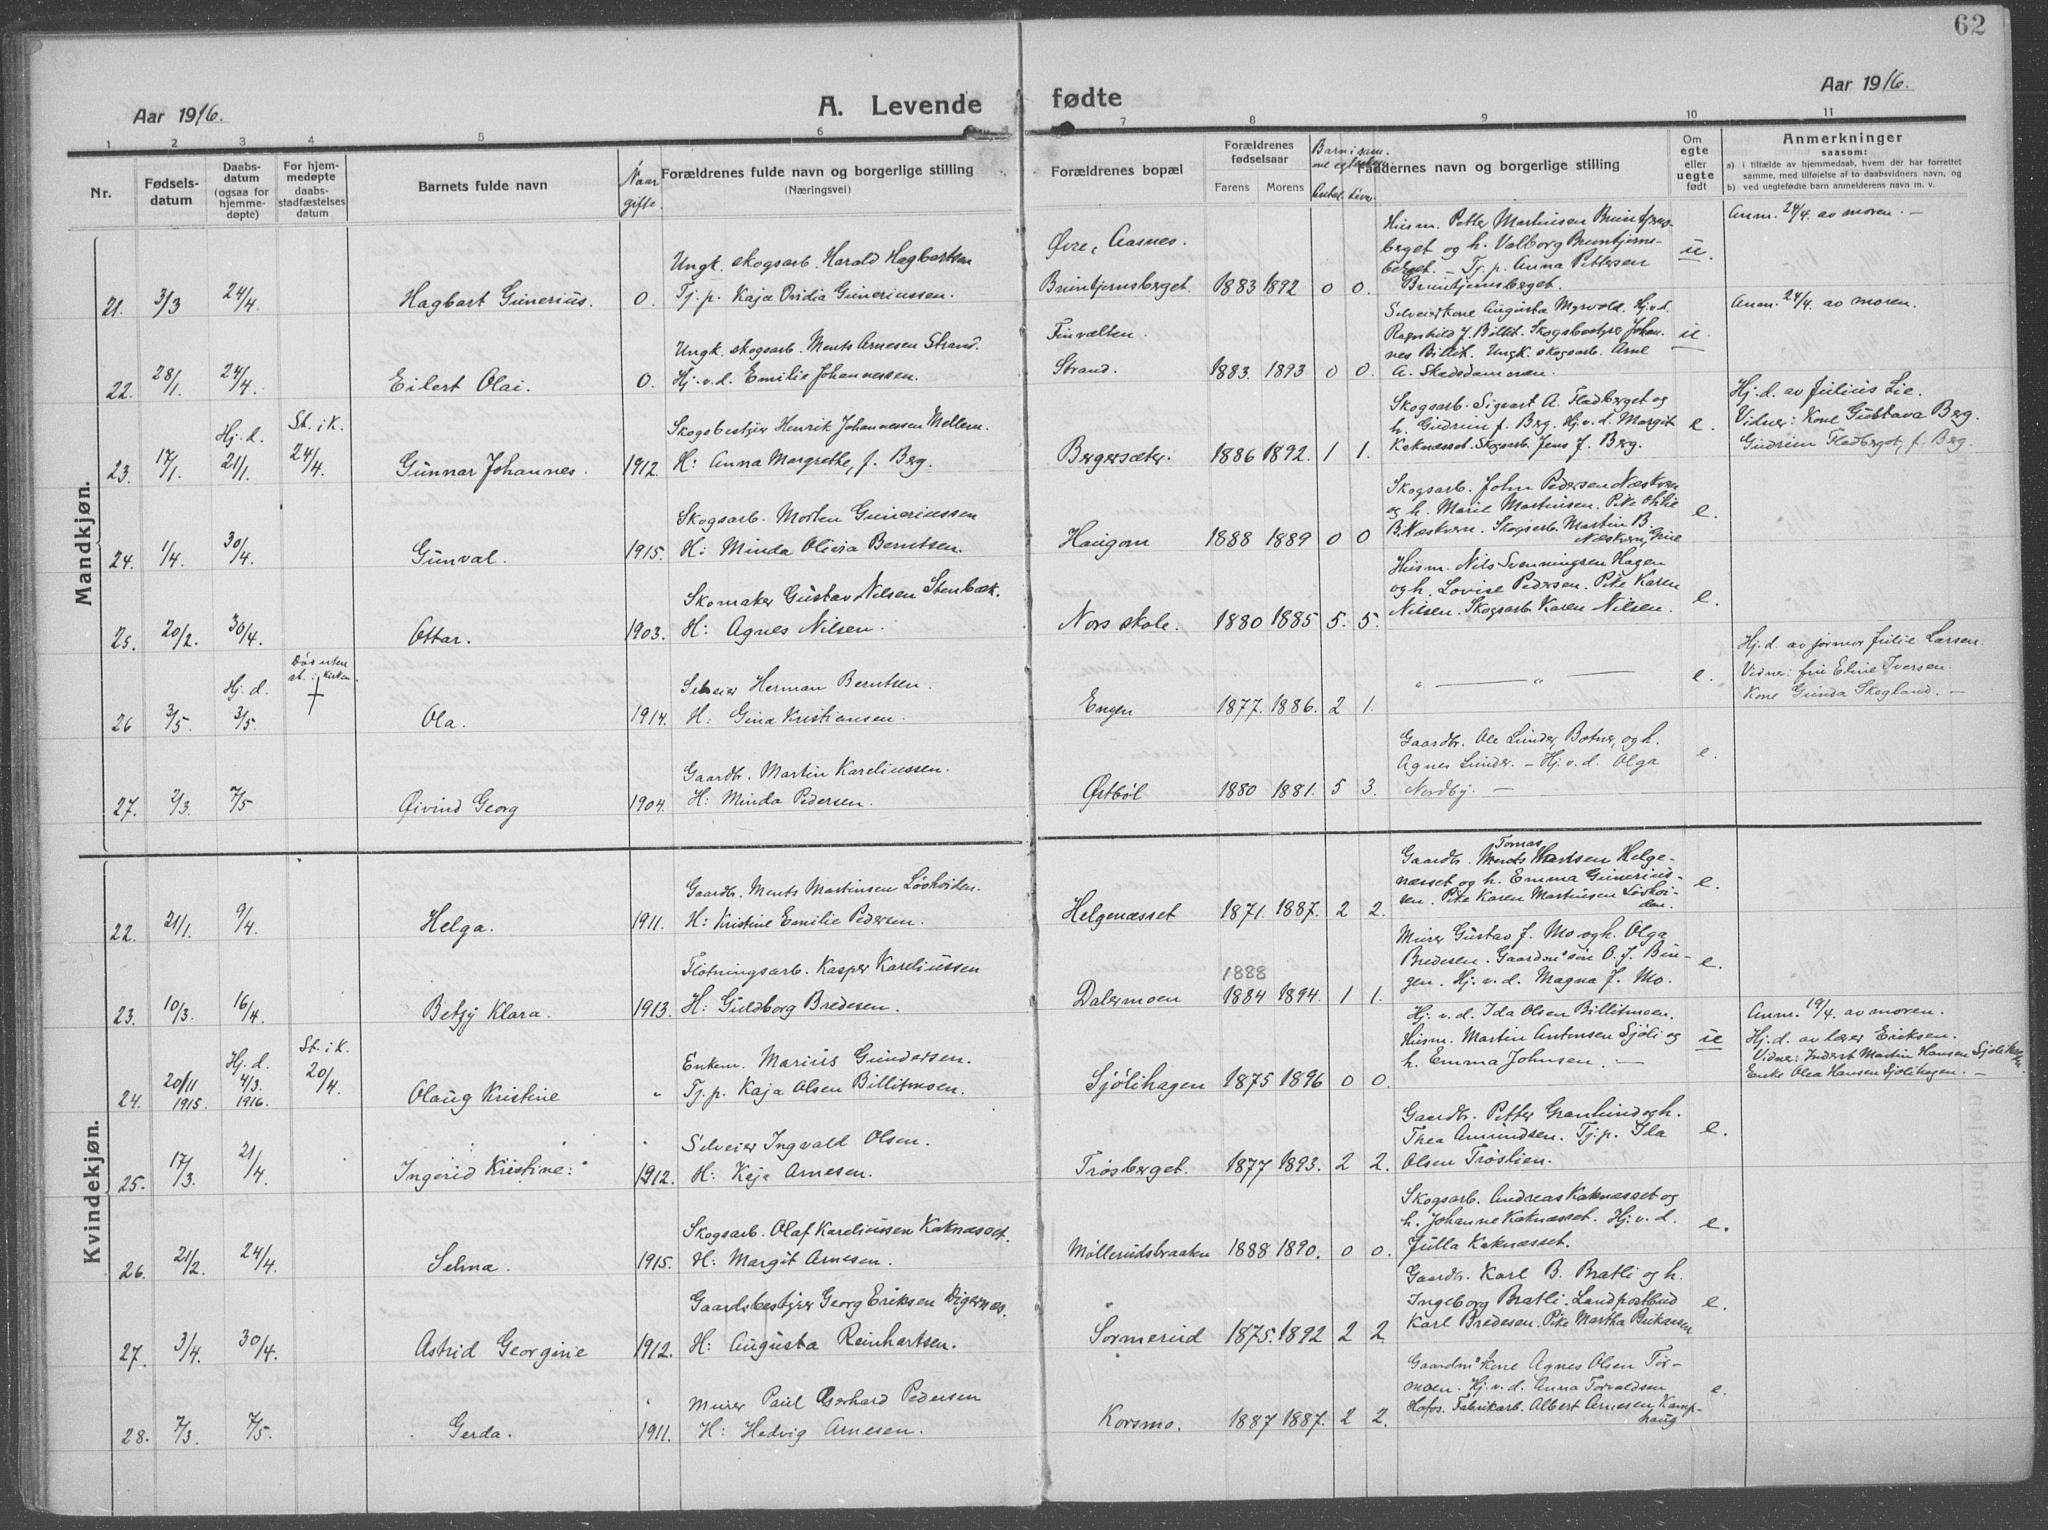 62
Aar 1916.
A. Levende fødte
Aar 1916.
1 2 3 4 5 6 7 8 9 10 11
Nr.
Fødsels-
datum
Daabs-
datum
(ogsaa for
hjemme-
døpte)
For hjem-
medøpte
daabs-
stadfæstelses
datum
Barnets fulde navn
Naar
gifte.
Forældrenes fulde navn og borgerlige stilling
(Næringsvei)
Forældrenes bopæl
Forældrenes
fødselsaar
Farens Morens
Barn i sam-
me egteskap.
Antal. Leve.
Faddernes navn og borgerlige stilling
Om
egte
eller
uegte
født
Anmerkninger
saasom:
a) i tilfælde av hjemmedaab, hvem der har forrettet
samme, med tilføielse af to daabsvidners navn, og
b) ved uegtefødte barn anmelderens navn m. v.
Mandkjøn.
21. 3/3 24/4 Hagbart Gunerius. 0.
Ungk. skogsarb. Harald Hagbartsen
Tj. p. Kaja Ovidia Guneriussen.
Øvre, Aasnes.
Bruntjernsberget. 1883 1892 0 0.
Husm. Petter Martinsen Bruntjerns-
berget og h. Valborg Bruntjerns-
berget. – Tj. p. Anna Pettersen
Bruntjernsberget.
u.
Anm. 24/4. av moren. –
22. 28/1. 24/4. Eilert Olai. 0.
Ungk. skogsarb. Ments Arnesen Strand.
Hj. v. d. Emilie Johannessen.
Finvælten.
Strand. 1883. 1893 0 0.
Selveierkone Augusta Myrvold. Hj. v. d.
Ragnhild J. Billit. Skogsbestyr Johan-
nes Billit. Ungk. skogsarb. Arne
A. Skadsdammen.
u.
Anm. 24/4. av moren.
23. 17/1. Hj. d. 21/1. St. i k. 24/4. Gunnar Johannes. 1912.
Skogsbestyrer Henrik Johannessen Mellem.
H: Anna Margrethe, f. Berg.
Bergersæter. 1886 1892. 1 1.
Skogsarb. Sigvart A. Fladberget og
h. Gudrun f. Berg. Hj. v. d. Margit
Kaknæsset. Skogsarb. Jens J. Berg.
e.
Hj. d. av Julius Lie.
Vidner: Kone Gustava Berg.
Gudrun Fladberget, f. Berg.
24. 1/4. 30/4. Gunval. 1915.
Skogsarb. Morten Guneriussen
H: Minda Olivia Berntsen.
Haugom 1888 1889 0 0
Skogsarb. John Pedersen Næskvern
og h. Marie Martinsen. Pike Othilie
B. Næskvern. Skogsarb. Martin B.
Næskvern,
e.
25. 20/2. 30/4. Ottar. 1903.
Skomaker Gustav Nilsen Stenbæk.
H: Agnes Nilsen.
Nors skole. 1880 1885 5. 5.
Husm. Nils Svenningsen Hagen
og h. Lovise Pedersen. Pike Karen
Nilsen. Skogsarb. Karen Nilsen.
e.
26 3/5. Hj. d. 3/5. Død uten st. i kirken. † Ola. 1914.
Selveier Herman Berntsen.
H: Gina Kristiansen.
Engen 1877. 1886. 2 1.
" — " —
e.
Hj. d. av jormor Julie Larsen.
Vidner: fru Eline Iversen.
Kone Gunda Skogland. –
27. 2/3. 7/5 Øivind Georg 1904.
Gaardbr. Martin Kareliussen.
H: Minda Pedersen.
Østbøl 1880 1881. 5 3.
Gaardbr. Ole Lunder, Botner, og h.
Agnes Lunder. – Hj. v. d. Olga
Nordby. –
e.
Kvindekjøn.
22. 21/1. 9/4. Helga. 1911.
Gaardbr. Ments Martinsen Løvhøiden.
H: Kristine Emilie Pedersen.
Helgenæsset 1871. 1887. 2 2.
Gaardbr. Hartsen Helge-
næsset og h. Emma Gunerius-
sen. Pike Karen Martinsen Løvhøi-
den.
e.
23. 10/3. 16/4. Betzy Klara. 1913.
Fløtningsarb. Kasper Kareliussen
H: Guldborg Bredesen.
Dalermoen 1888 1884 1894. 1 1.
Murer Gustav J. Mo og h. Olga
Bredesen. Gaardm. søn O. J. Bun-
gen. Hj. v. d. Magna J. Mo.
e.
24. 20/11 1915. Hj. d. 4/3. 1916. St. i k. 20/4. Olaug Kristine "
Enkem. Marius Gundersen.
Tj. p. Kaja Olsen Billitmoen.
Sjølihagen 1875 1896 0 0.
Hj. v. d. Ida Olsen Billitmoen.
Husm. Martin Antonsen Sjøli og
h. Emma Johnsen. –
u
Anm. 19/4. av moren.
Hj. d. av lærer Eriksen.
Vidner: Inderst Martin Hansen Sjølihagen
Enke Olea Hansen Sjølihagen. –
25. 17/3. 21/4. Ingerid Kristine. 1912.
Selveier Ingvald Olsen.
H: Kaja Arnesen.
Trøsberget. 1877 1893. 2 2.
Gaardbr. Petter Granlund og h.
Thea Amundsen. Tj. p. Ida
Olsen Trøslien.
e.
26. 21/2. 24/4. Selma. 1915.
Skogsarb. Olaf Kareliussen Kaknæsset.
H: Margit Arnesen.
Møllerudsbraaten 1888 1890. 0 0.
Skogsarb. Andreas Kaknæsset og
h. Johanne Kaknæsset. Hj. v. d.
Julla Kaknæsset.
e.
27. 3/4. 30/4. Astrid Georgine 1912.
Gaardsbestyrer Georg Eriksen Digernæs.
H: Augusta Reinhartsen.
Sormerud 1875. 1892 2 2.
Gaardbr. Karl B. Bratli og h.
Ingeborg Bratli. Landpostbud
Karl Bredesen. Pike Martha
e.
28. 7/3. 7/5. Gerda. 1911.
Murer Paul Gerhard Pedersen
H: Hedvig Arnesen.
Korsmo. 1887 1887. 2 2.
Gaardm. Kone Agnes Olsen Tor-
moen. Hj. v. d. Anna Torvaldsen
Hofos. Fabrikarb. Albert Arnesen Kamp-
haug
e.